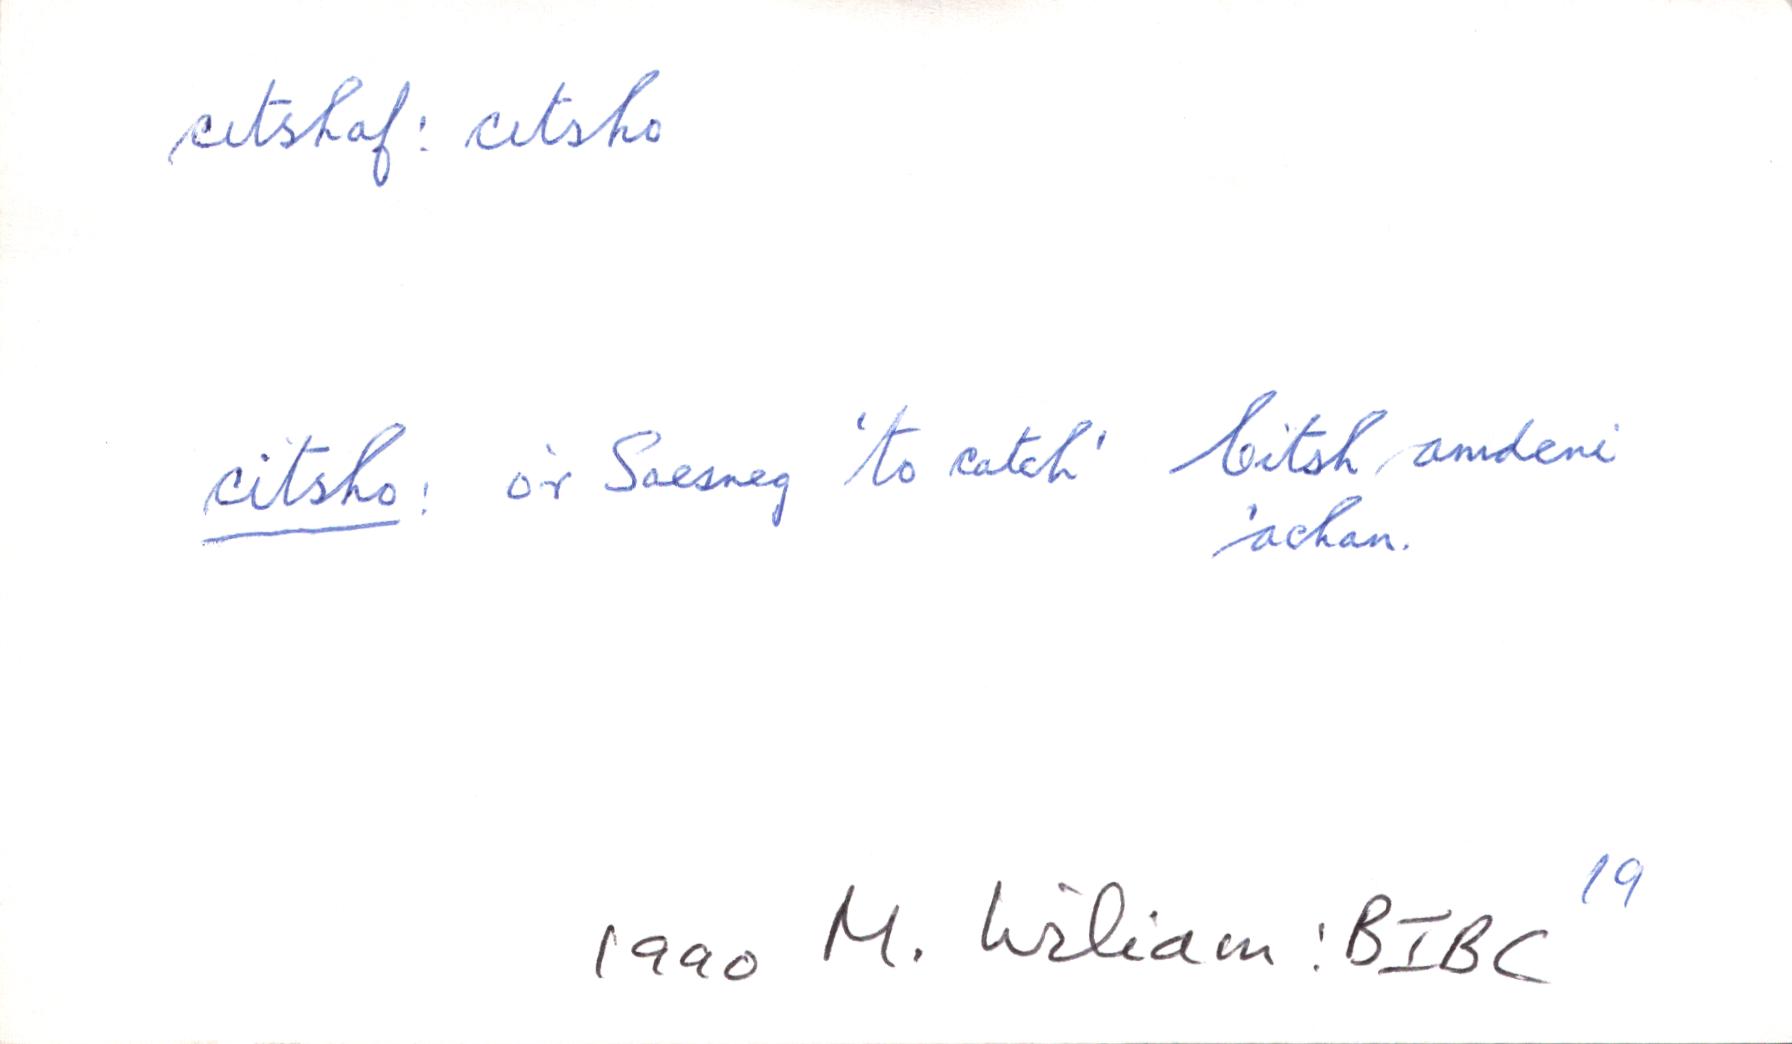 citshaf: citsho
citsho: o'r Saesneg 'to catch' Citsh amdeni
'achan.
19
1990 M. Wiliam: BIBC